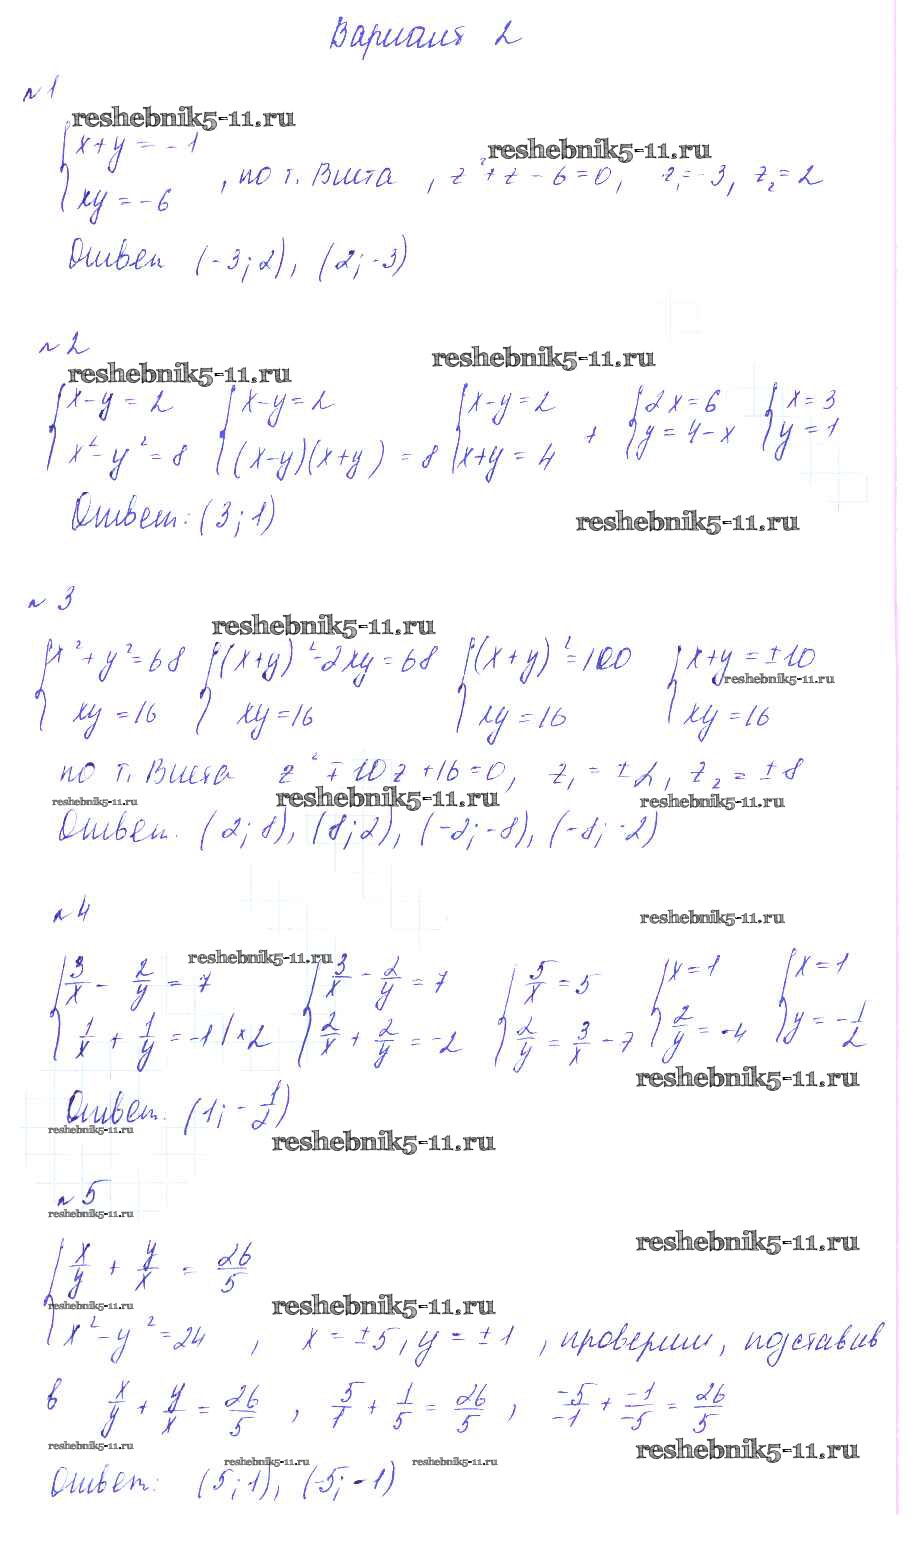 Вариант 2
№1
reshebnik5-11.ru
x+y = -1
reshebnik5-11.ru
xy = -6 , по т. Виета , z² + z - 6 = 0, z₁ = -3, z₂ = 2
Ответ (-3; 2), (2; -3)
№2
reshebnik5-11.ru
reshebnik5-11.ru
x-y = 2 x-y = 2 x-y = 2 2x = 6 x = 3
x² - y² = 8 (x-y)(x+y) = 8 x+y = 4 + y = 4-x y = 1
Ответ: (3; 1)
reshebnik5-11.ru
№3
reshebnik5-11.ru
x² + y² = 68 (x+y)² - 2xy = 68 (x+y)² = 100 x+y = ±10
reshebnik5-11.ru
xy = 16 xy = 16 xy = 16 xy = 16
по т. Виета z² ∓ 10z + 16 = 0, z₁ = ±2, z₂ = ±8
reshebnik5-11.ru reshebnik5-11.ru reshebnik5-11.ru
Ответ. (2; 8), (8; 2), (-2; -8), (-8; -2)
№4
reshebnik5-11.ru
reshebnik5-11.ru
3/x - 2/y = 7 3/x - 2/y = 7 5/x = 5 x = 1 x = 1
1/x + 1/y = -1 | *2 2/x + 2/y = -2 2/y = 3/x - 7 2/y = -4 y = -1/2
reshebnik5-11.ru
Ответ. (1; -1/2)
reshebnik5-11.ru
reshebnik5-11.ru
№5
reshebnik5-11.ru
reshebnik5-11.ru
x/y + y/x = 26/5
reshebnik5-11.ru
reshebnik5-11.ru
x² - y² = 24 , x = ±5, y = ±1 , проверим, подставив
в x/y + y/x = 26/5 , 5/1 + 1/5 = 26/5 , -5/-1 + -1/-5 = 26/5
reshebnik5-11.ru
reshebnik5-11.ru
reshebnik5-11.ru reshebnik5-11.ru
Ответ: (5; 1), (-5; -1)